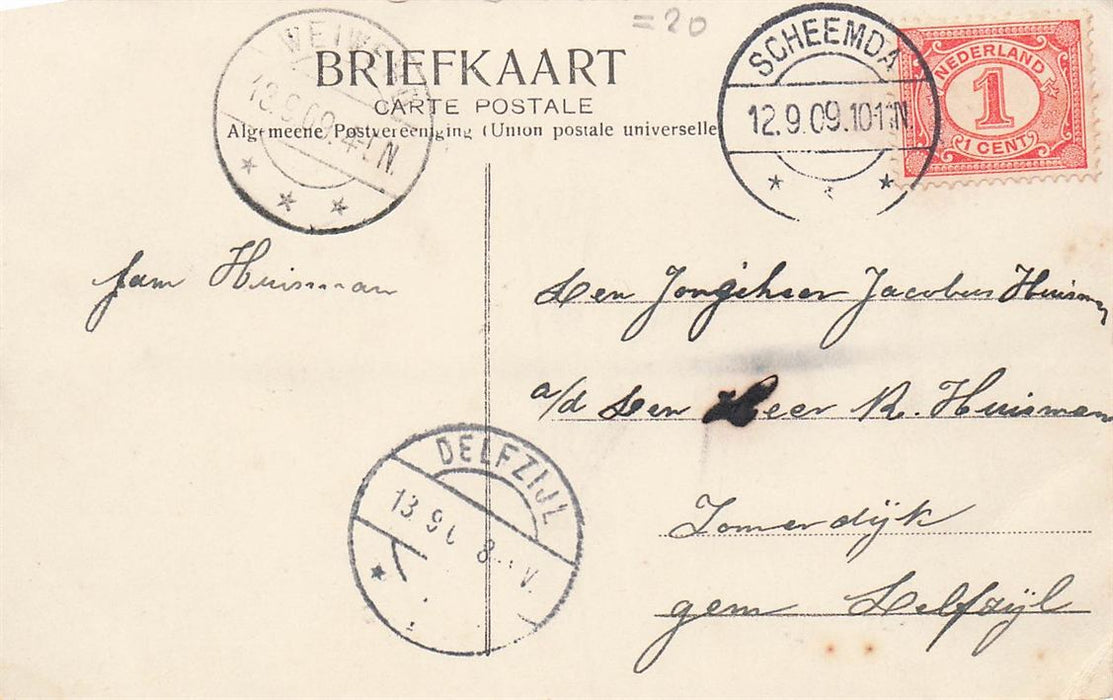 =20
BRIEFKAART
CARTE POSTALE
Algemeene Postvereeniging (Union postale universelle
SCHEEMDA
12.9.09.10-11N
NEDERLAND
1
1 CENT
13.9.09.4-5N
fam Huisman
Den Jongeheer Jacobus Huisman
a/d Den Heer R. Huisman
Zomerdijk
gem Delfzijl
DELFZIJL
13.9 8 V